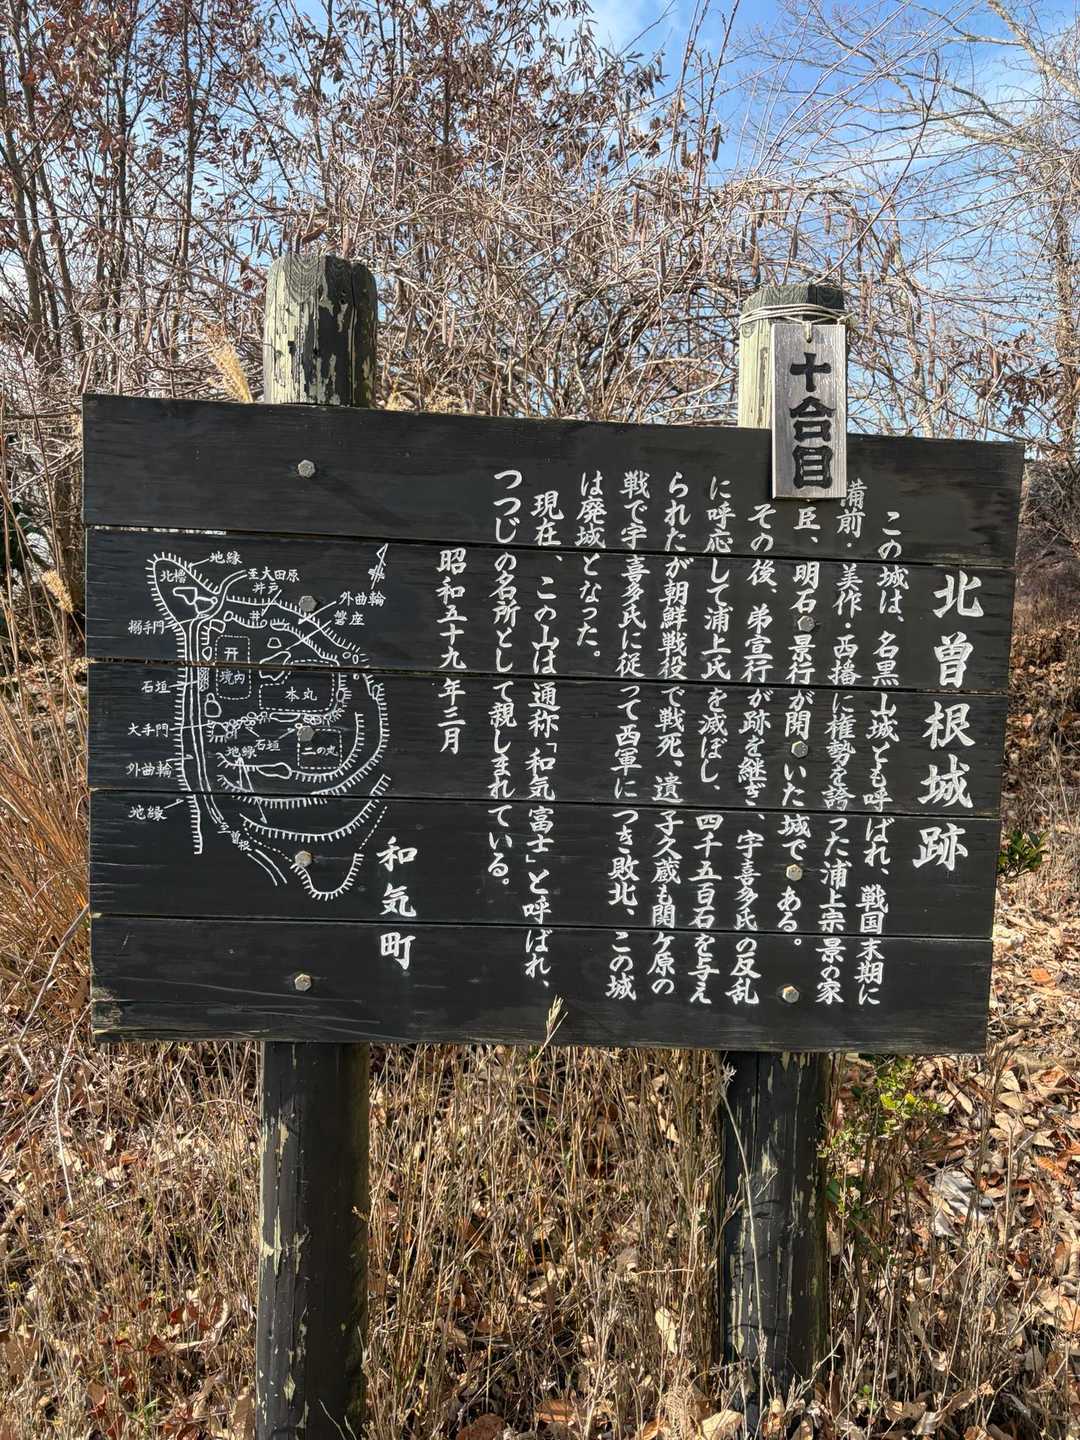 十合目
北曽根城跡
この城は、名黒山城とも呼ばれ、戦国末期に
備前・美作・西播に権勢を誇った浦上宗景の家
臣、明石景行が開いた城である。
その後、弟宣行が跡を継ぎ、宇喜多氏の反乱
に呼応して浦上氏を滅ぼし、四千五百石を与え
られたが朝鮮戦役で戦死、遺子久蔵も関ケ原の
戦で宇喜多氏に従って西軍につき敗北、この城
は廃城となった。
現在、この山は通称「和気富士」と呼ばれ、
つつじの名所として親しまれている。
昭和五十九年三月
和気町
地縁
北櫓
至大田原
井戸
外曲輪
磐座
搦手門
境内
石垣
本丸
大手門
地縁
石垣
二の丸
外曲輪
地縁